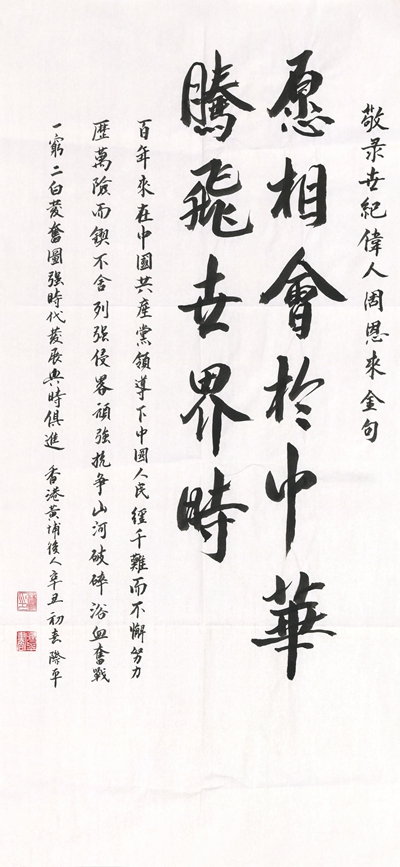 敬录世紀偉人周恩來金句
愿相會於中華
騰飛世界時
百年來在中國共產黨領導下中國人民經千難而不懈努力
歷萬險而鍥不舍列强侵畧頑強抗争山河破碎浴血奮戰
一窮二白發奮圖強時代發展與時俱進 香港黄埔後人辛丑初春際平